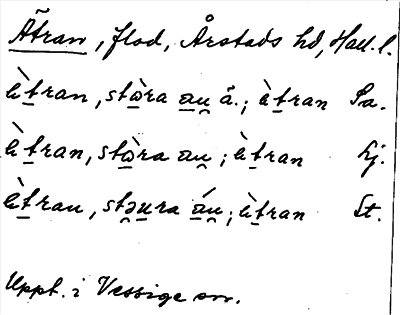 Ätran, flod, Årstads hd, Hall. l.
ètran, stòra au å.; ètran Sa.
ètran, stòra au; ètran Lj.
ètran, stəura áu; ètran St.
Uppt. i Vessige sn.